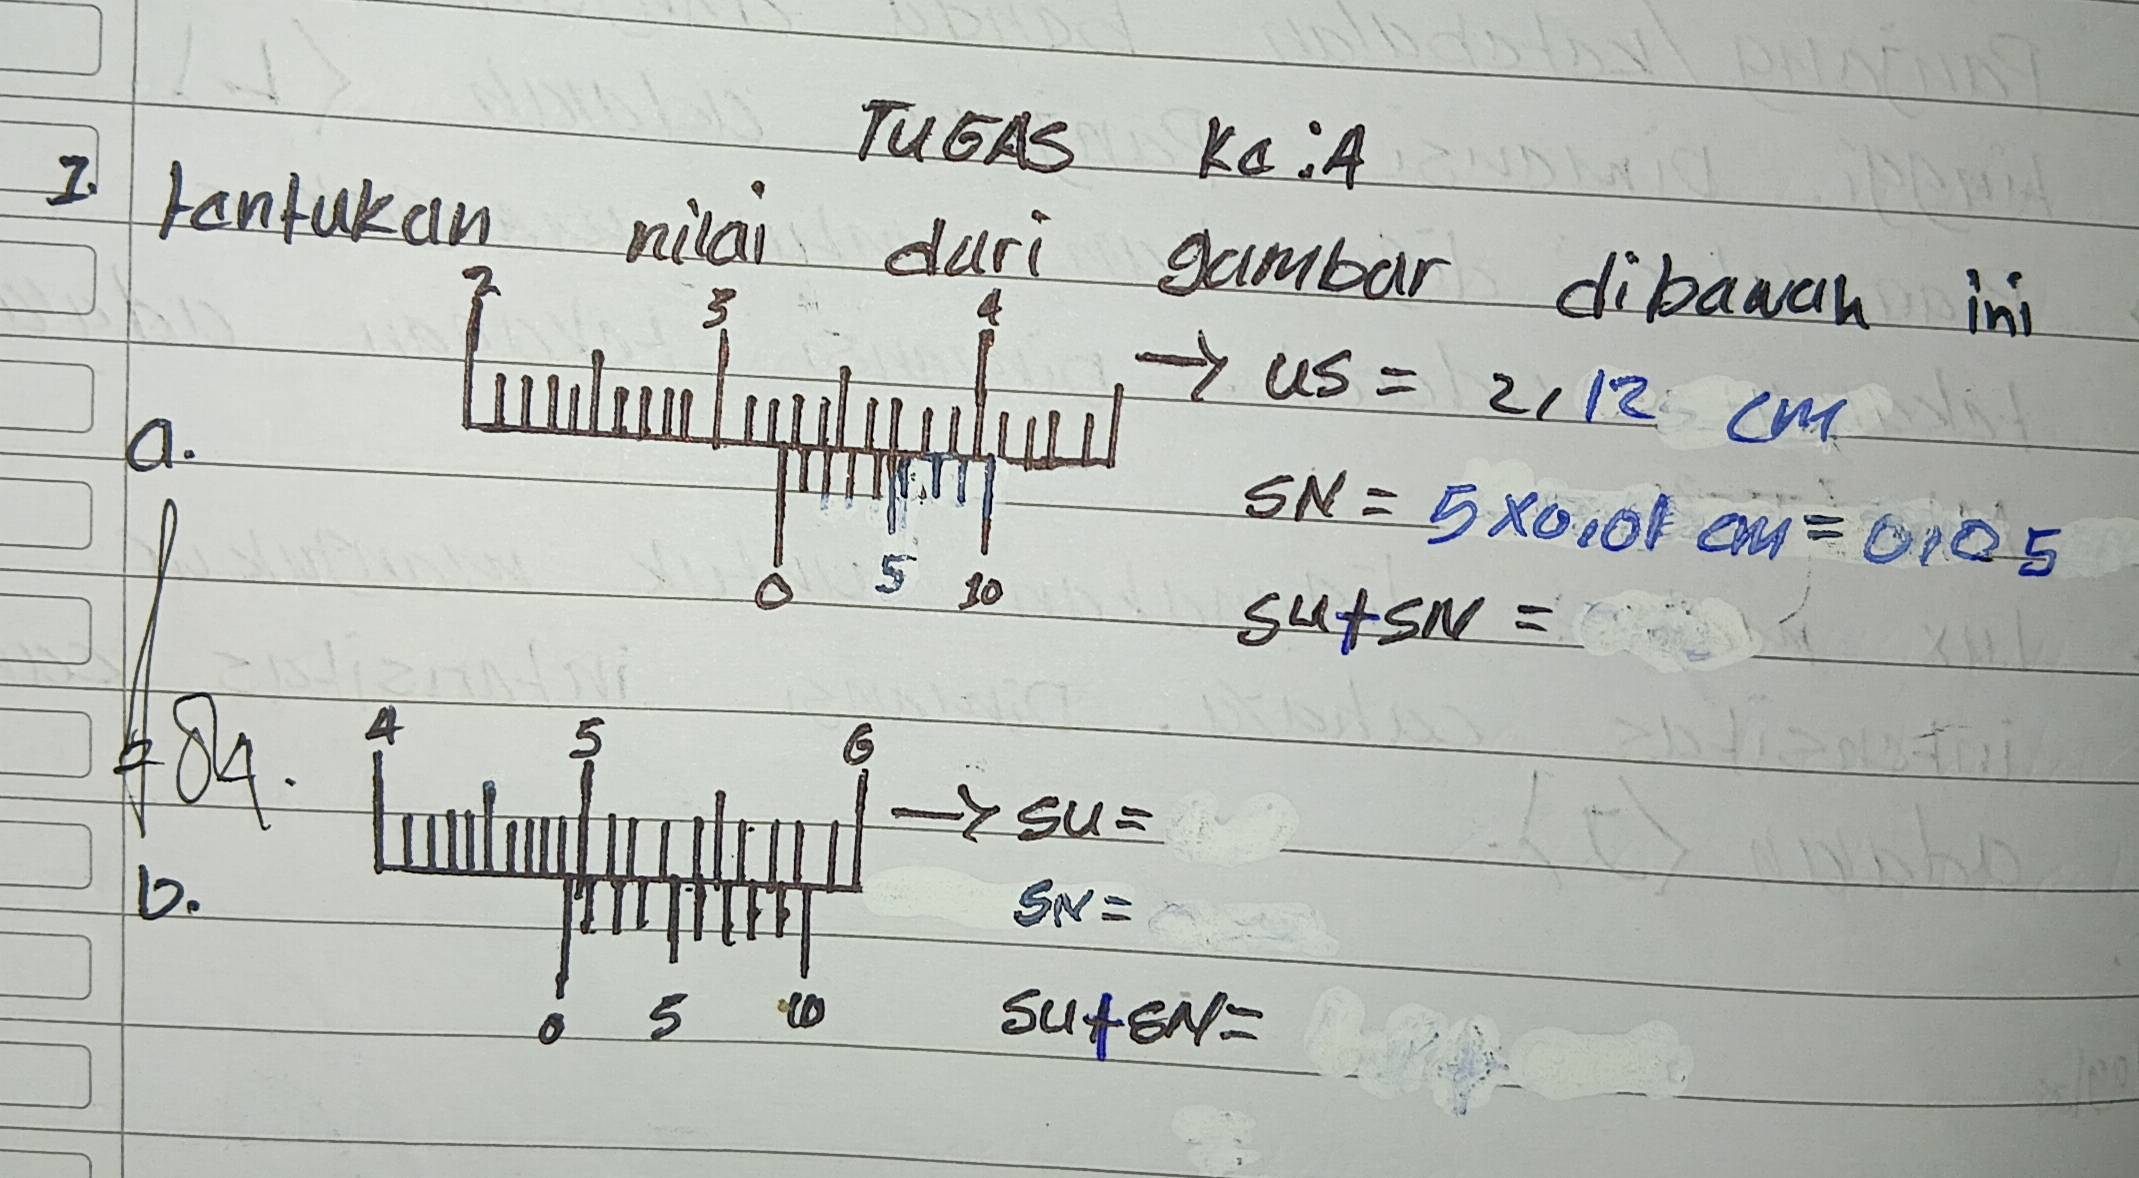 TUGAS Ke:A
I. tentukan nilai dari gambar dibawah ini
2 3 4
a. → US = 2,12 cm
SN = 5 x 0,01 cm = 0,05
0 5 10
SU+SN =
4 5 6
→ SU =
b. SN =
0 5 10
SU+SN =